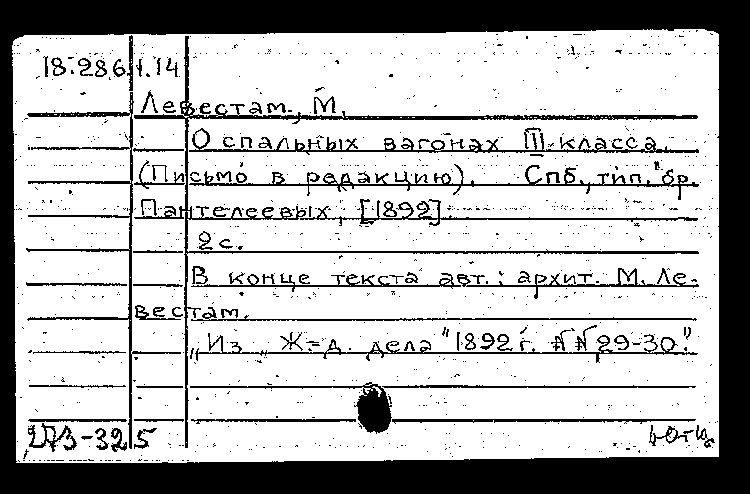 18.286.1.14
Левестам, М.
О спальных вагонах III класса.
(Письмо в редакцию). Спб., тип. бр.
Пантелеевых, [1892].
2 с.
В конце текста авт.: архит. М. Ле-
вестам.
„Из „Ж=д. дела" 1892 г. №№ 29-30."
273-32 5